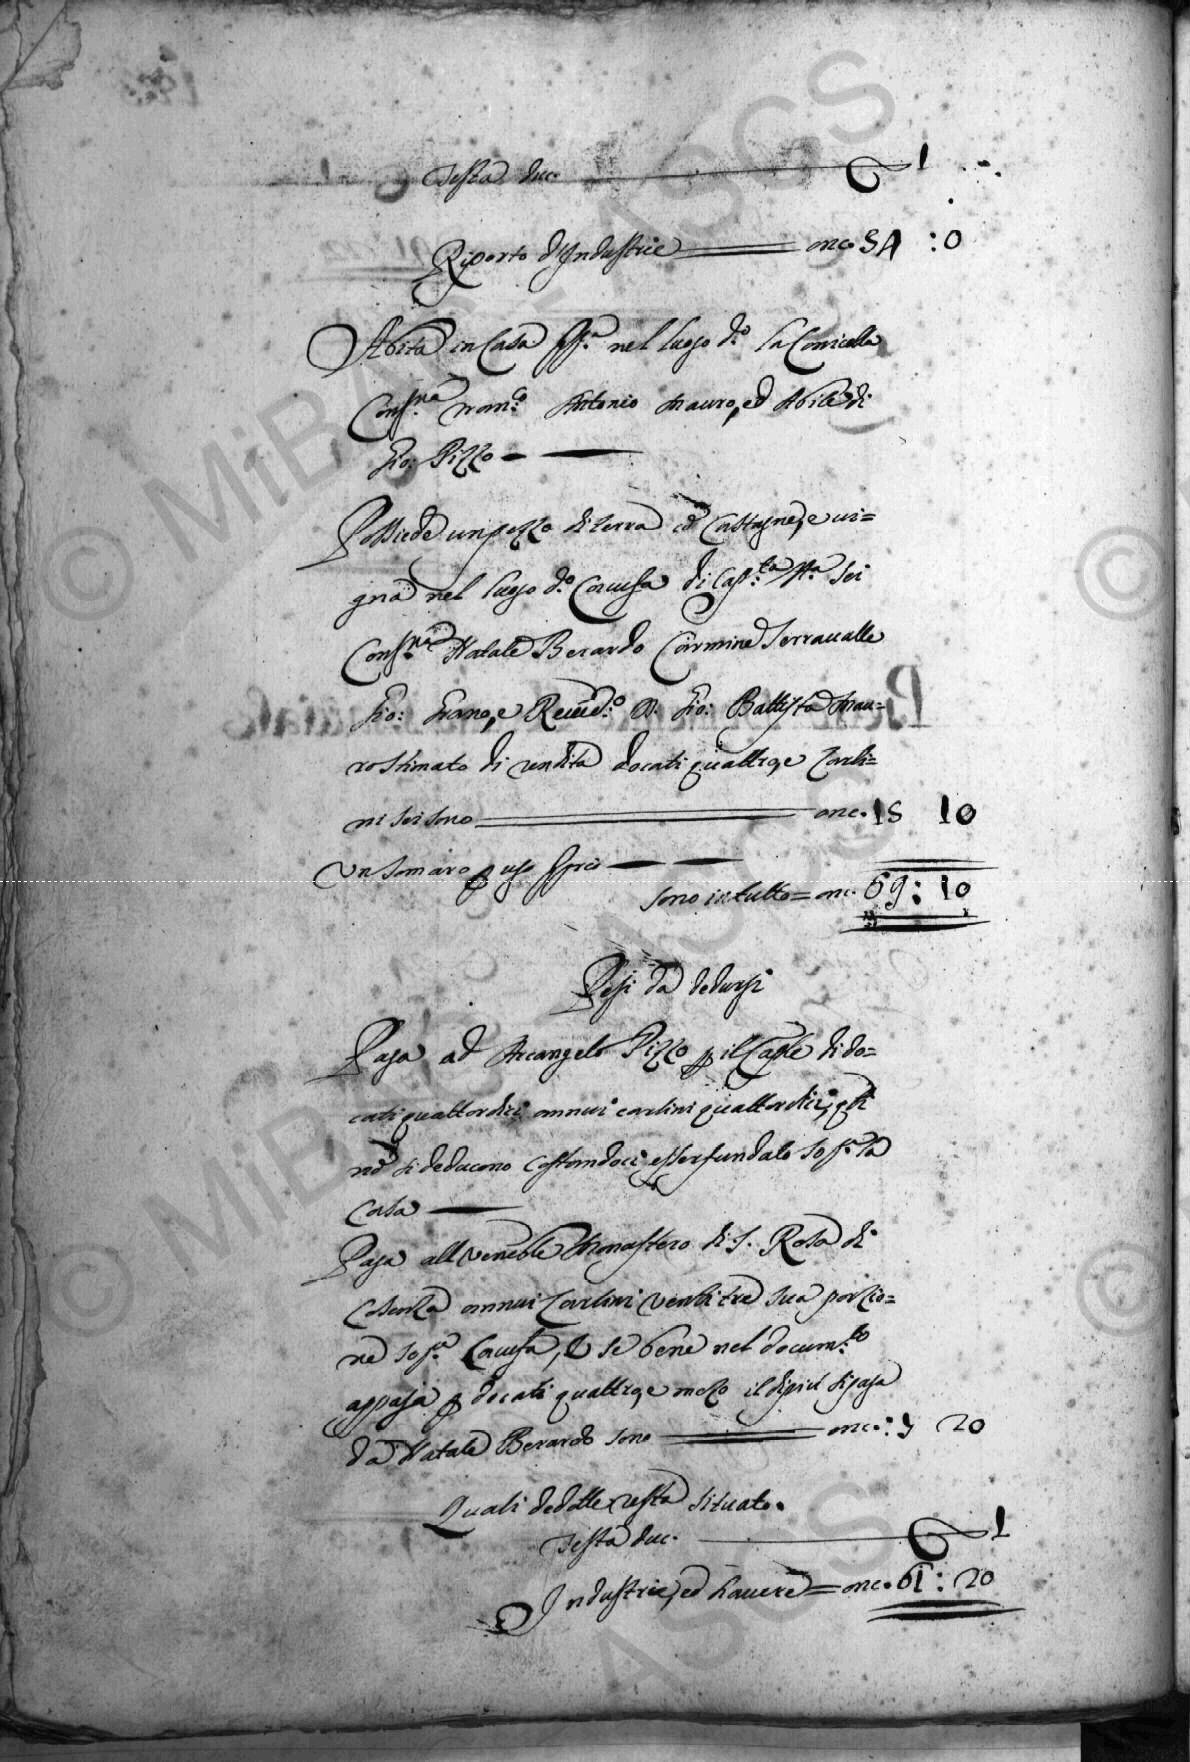 Testa duc. 1
Riporto d'Industrie onc. 54 : 0
Abita in Casa pp.a nel luogo d.o la Conicella
Conf.na nom.e Antonio Mauro, ed Abile di
Gio: Pizzo
Possiede un pezzo di terra cõ Castagne, e vi=
gna nel luogo d.o Cavusa di Cap.ta pp.a sei
Conf.na Natale Berardo Carmine Serravalle
Gio: Grano, e Revēd.o D. Gio: Battista Mau=
ro Stimato di rendita docati quattro, e Carli=
ni sei sono onc. 15 10
Un Somaro p uso pprio
Sono in tutto= onc. 69: 10
Pesi da dedursi
Paga ad Arcangelo Pizzo p il Caple di do=
cati quattordici annui carlini quattordici, q̃li
nõ si deducono costandoci esser fundato sop.a la
Casa
Paga all Venerble Monastero di S. Rosa di
Cosenza annui Carlini Ventitre sua porzio=
ne sop.a Cavusa, E se bene nel docum.to
appaja p docati quattro, e mezo il dipiù si paga
da Natale Berardo sono onc.: 7 20
Quali dedotte resta situato.
Testa duc. 1
Industrie, ed havere= onc. 61: 20
© MiBAC - ASCS
© MiBAC - ASCS
ASCS
©
©